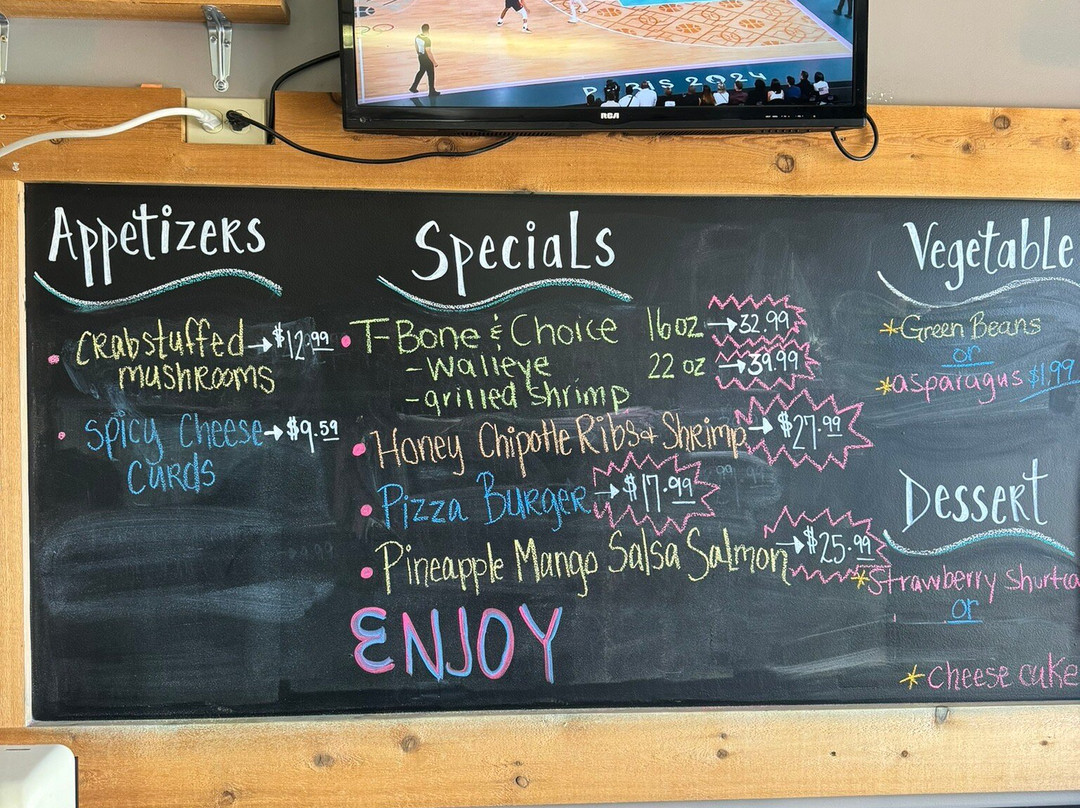 PARIS 2024
RCA
Appetizers
crabstuffed → $12.99
mushrooms
spicy cheese → $9.59
curds
Specials
T-Bone & Choice 16oz → 32.99
- Walleye 22 oz → 39.99
- grilled shrimp
Honey Chipotle Ribs & Shrimp → $27.99
Pizza Burger → $17.99
Pineapple Mango Salsa Salmon → $25.99
ENJOY
Vegetable
*Green Beans
or
*asparagus $1.99
Dessert
*Strawberry Shortca
or
*cheese cake